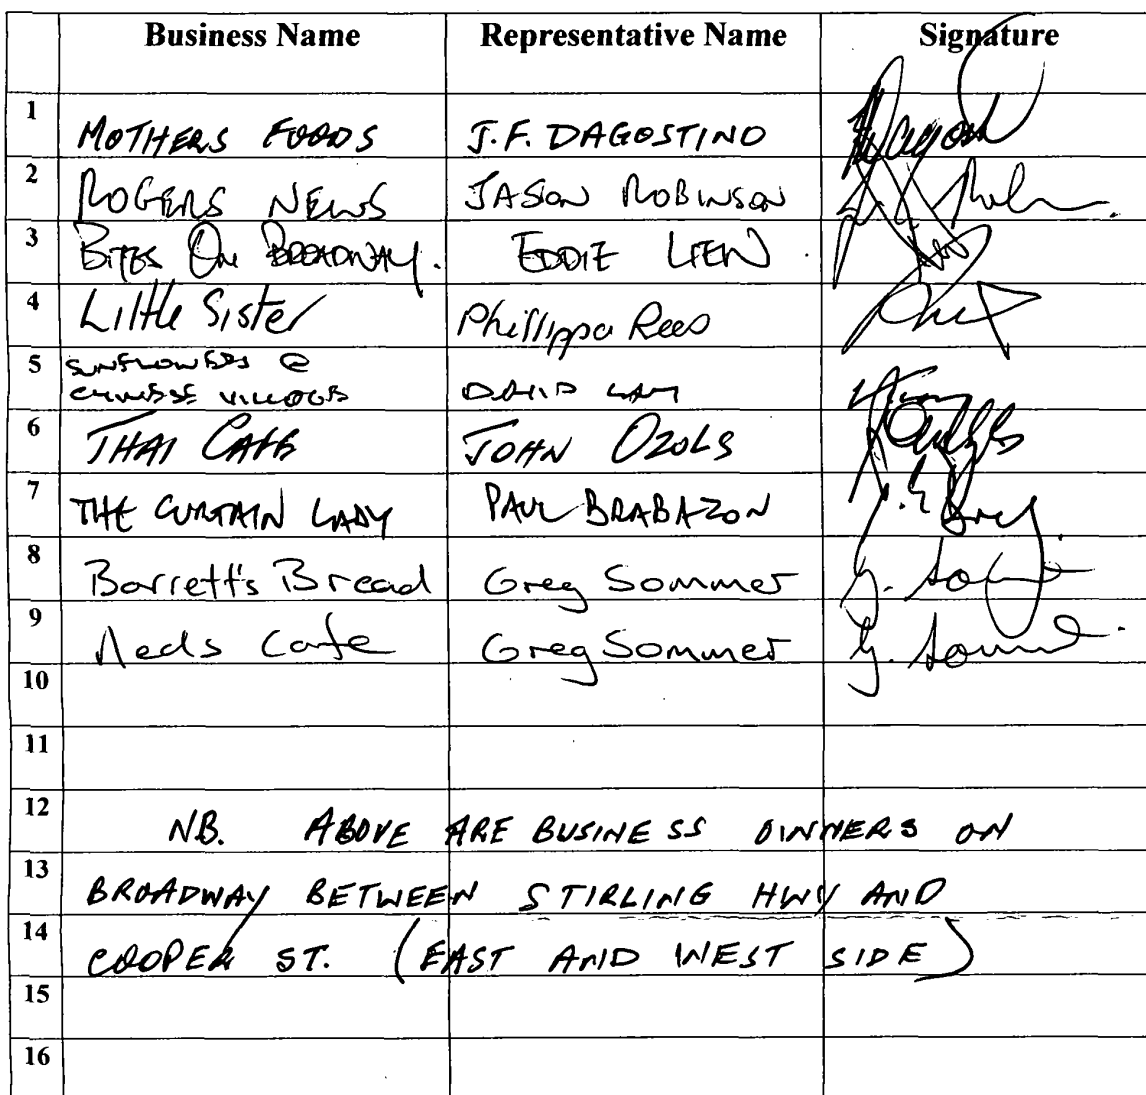 Business Name Representative Name Signature
1 MOTHERS FOODS J.F. DAGOSTINO
2 ROGERS NEWS JASON ROBINSON
3 BITES On BROADWAY. EDDIE LIEW
4 Little Sister Phillippa Rees
5 SUNFLOWERS @
CHINESE VILLAGE DAVID LAM
6 THAI CAFE JOHN OZOLS
7 THE CURTAIN LADY PAUL BRABAZON
8 Barrett's Bread Greg Sommer
9 Neds Cafe Greg Sommer
10
11
12 NB. ABOVE ARE BUSINESS OWNERS ON
13 BROADWAY BETWEEN STIRLING HWY AND
14 COOPER ST. (EAST AND WEST SIDE)
15
16